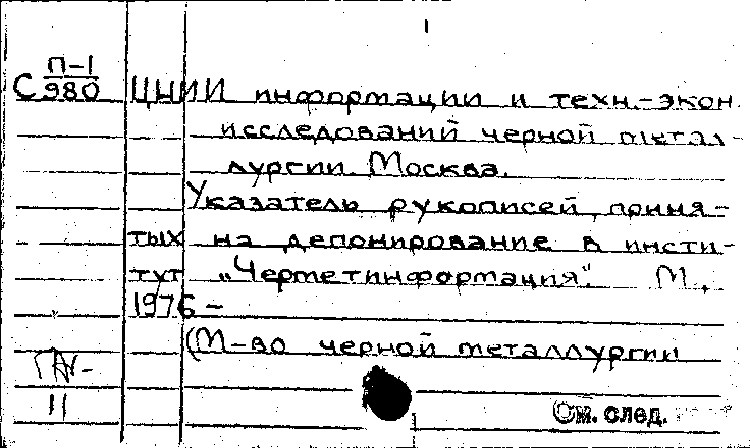 1
С П-1
980 ЦНИИ информации и техн.-экон.
исследований черной метал-
лургии. Москва.
Указатель рукописей, приня-
тых на депонирование в инсти-
тут „Черметинформация". М.,
1976 –
(М-во черной металлургии
11
См. след.